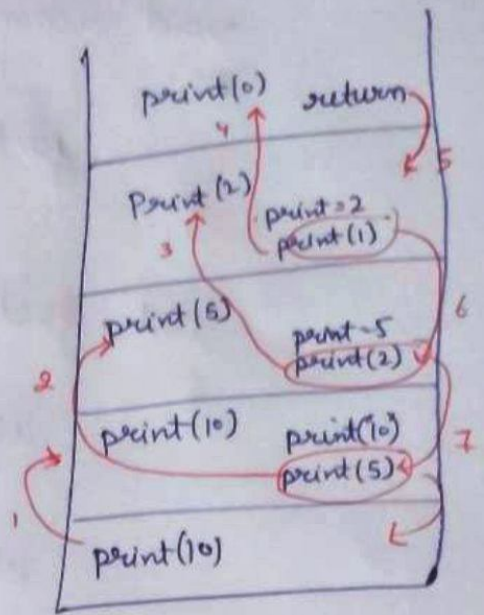 print(0) return
4
5
Print(2) print=2
3 print(1)
6
print(5) print=5
print(2)
2
print(10) print(10)
7
print(5)
1
print(10)